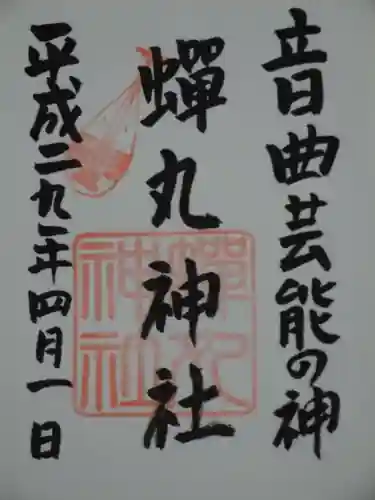 音曲芸能の神
蟬丸神社
平成二九年四月一日
蟬丸神社